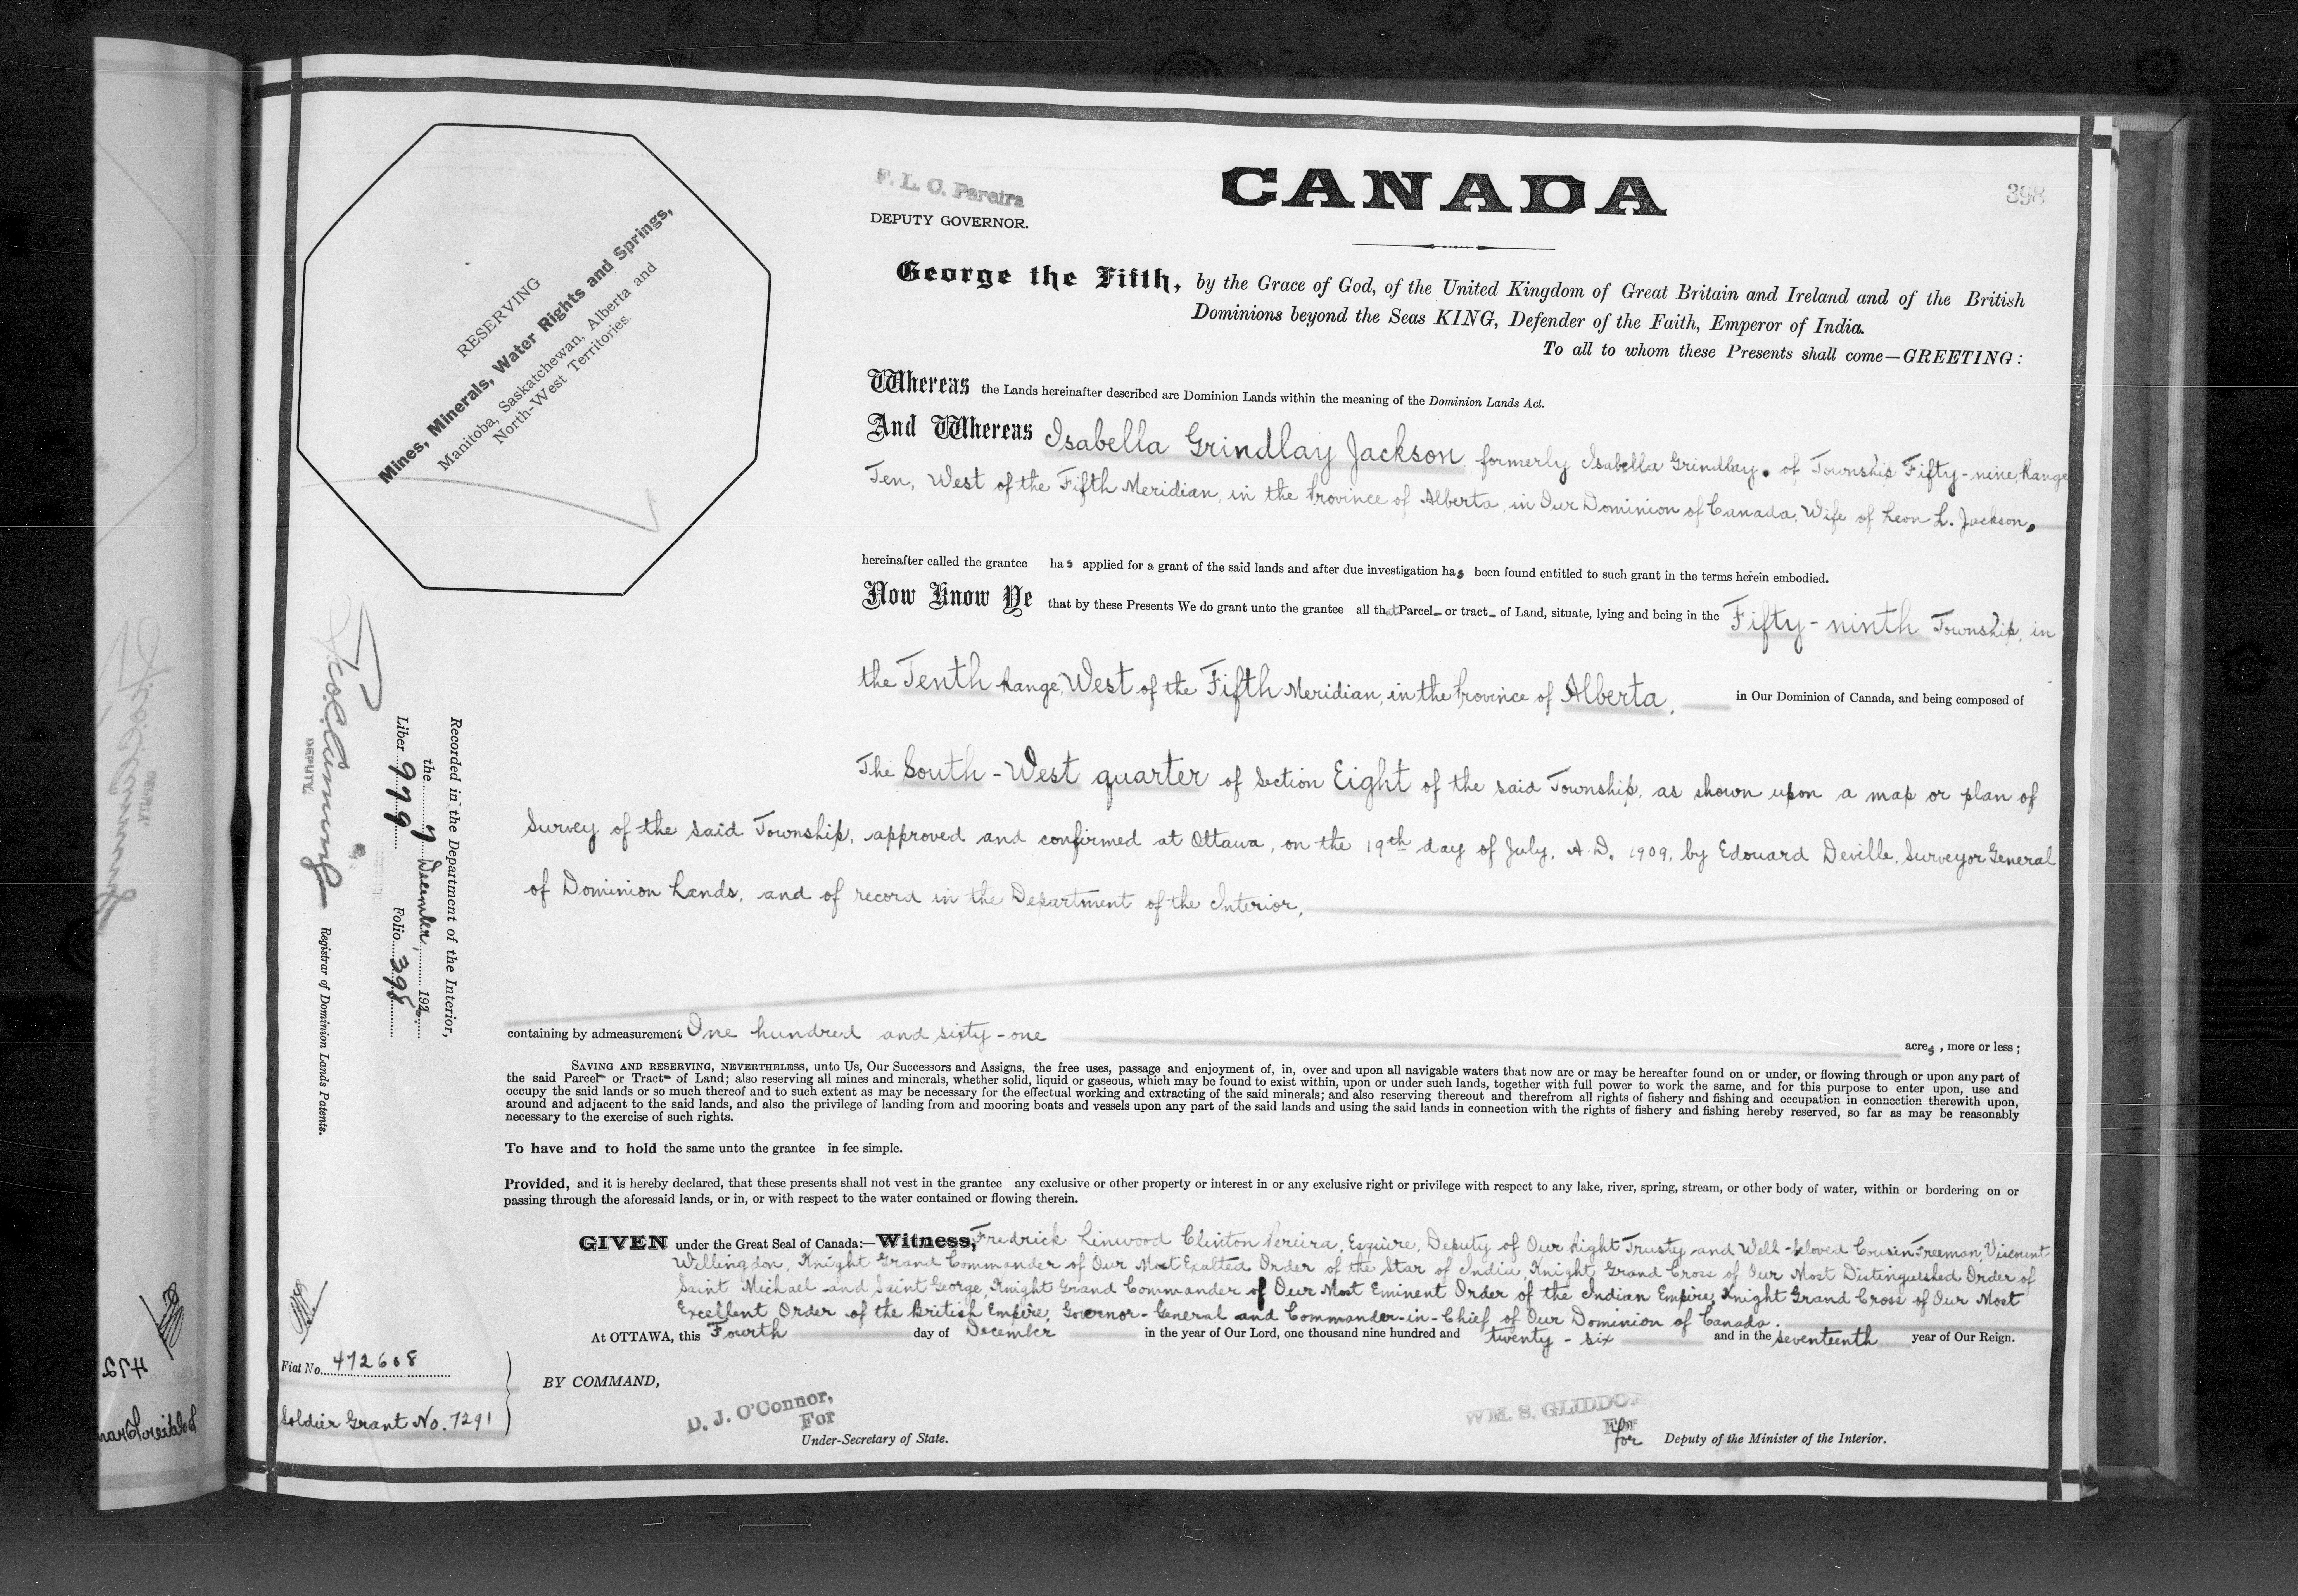 F. L. C. Pereira
DEPUTY GOVERNOR.
CANADA
398
RESERVING
Mines, Minerals, Water Rights and Springs,
Manitoba, Saskatchewan, Alberta and
North-West Territories.
George the Fifth, by the Grace of God, of the United Kingdom of Great Britain and Ireland and of the British
Dominions beyond the Seas KING, Defender of the Faith, Emperor of India.
To all to whom these Presents shall come—GREETING:
Whereas the Lands hereinafter described are Dominion Lands within the meaning of the Dominion Lands Act.
And Whereas Isabella Grindlay Jackson, formerly Isabella Grindlay, of Township Fifty-nine, Range
Ten, West of the Fifth Meridian, in the Province of Alberta, in Our Dominion of Canada, Wife of Leon L. Jackson,
hereinafter called the grantee has applied for a grant of the said lands and after due investigation has been found entitled to such grant in the terms herein embodied.
Now Know Ye that by these Presents We do grant unto the grantee all that Parcel or tract of Land, situate, lying and being in the Fifty-ninth Township, in
the Tenth Range, West of the Fifth Meridian, in the Province of Alberta, in Our Dominion of Canada, and being composed of
The South-West quarter of Section Eight of the said Township, as shown upon a map or plan of
Survey of the said Township, approved and confirmed at Ottawa, on the 19th day of July, A.D. 1909, by Edouard Deville, Surveyor General
of Dominion Lands, and of record in the Department of the Interior,
containing by admeasurement One hundred and sixty-one acres, more or less;
SAVING AND RESERVING, NEVERTHELESS, unto Us, Our Successors and Assigns, the free uses, passage and enjoyment of, in, over and upon all navigable waters that now are or may be hereafter found on or under, or flowing through or upon any part of
the said Parcel or Tract of Land; also reserving all mines and minerals, whether solid, liquid or gaseous, which may be found to exist within, upon or under such lands, together with full power to work the same, and for this purpose to enter upon, use and
occupy the said lands or so much thereof and to such extent as may be necessary for the effectual working and extracting of the said minerals; and also reserving thereout and therefrom all rights of fishery and fishing and occupation in connection therewith upon,
around and adjacent to the said lands, and also the privilege of landing from and mooring boats and vessels upon any part of the said lands and using the said lands in connection with the rights of fishery and fishing hereby reserved, so far as may be reasonably
necessary to the exercise of such rights.
To have and to hold the same unto the grantee in fee simple.
Provided, and it is hereby declared, that these presents shall not vest in the grantee any exclusive or other property or interest in or any exclusive right or privilege with respect to any lake, river, spring, stream, or other body of water, within or bordering on or
passing through the aforesaid lands, or in, or with respect to the water contained or flowing therein.
GIVEN under the Great Seal of Canada:—Witness, Fredrick Linwood Clinton Pereira, Esquire, Deputy of Our Right Trusty and Well-beloved Cousin Freeman, Viscount
Willingdon, Knight Grand Commander of Our Most Exalted Order of the Star of India, Knight Grand Cross of Our Most Distinguished Order of
Saint Michael and Saint George, Knight Grand Commander of Our Most Eminent Order of the Indian Empire, Knight Grand Cross of Our Most
Excellent Order of the British Empire, Governor-General and Commander-in-Chief of Our Dominion of Canada.
At OTTAWA, this Fourth day of December in the year of Our Lord, one thousand nine hundred and twenty-six and in the seventeenth year of Our Reign.
BY COMMAND,
D. J. O'Connor,
For
Under-Secretary of State.
WM. S. GLIDDON
For
for
Deputy of the Minister of the Interior.
Recorded in the Department of the Interior,
the 7 December, 1926.
Liber 999 Folio 398
DEPUTY.
Registrar of Dominion Lands Patents.
Fiat No. 472608
Soldier Grant No. 7291